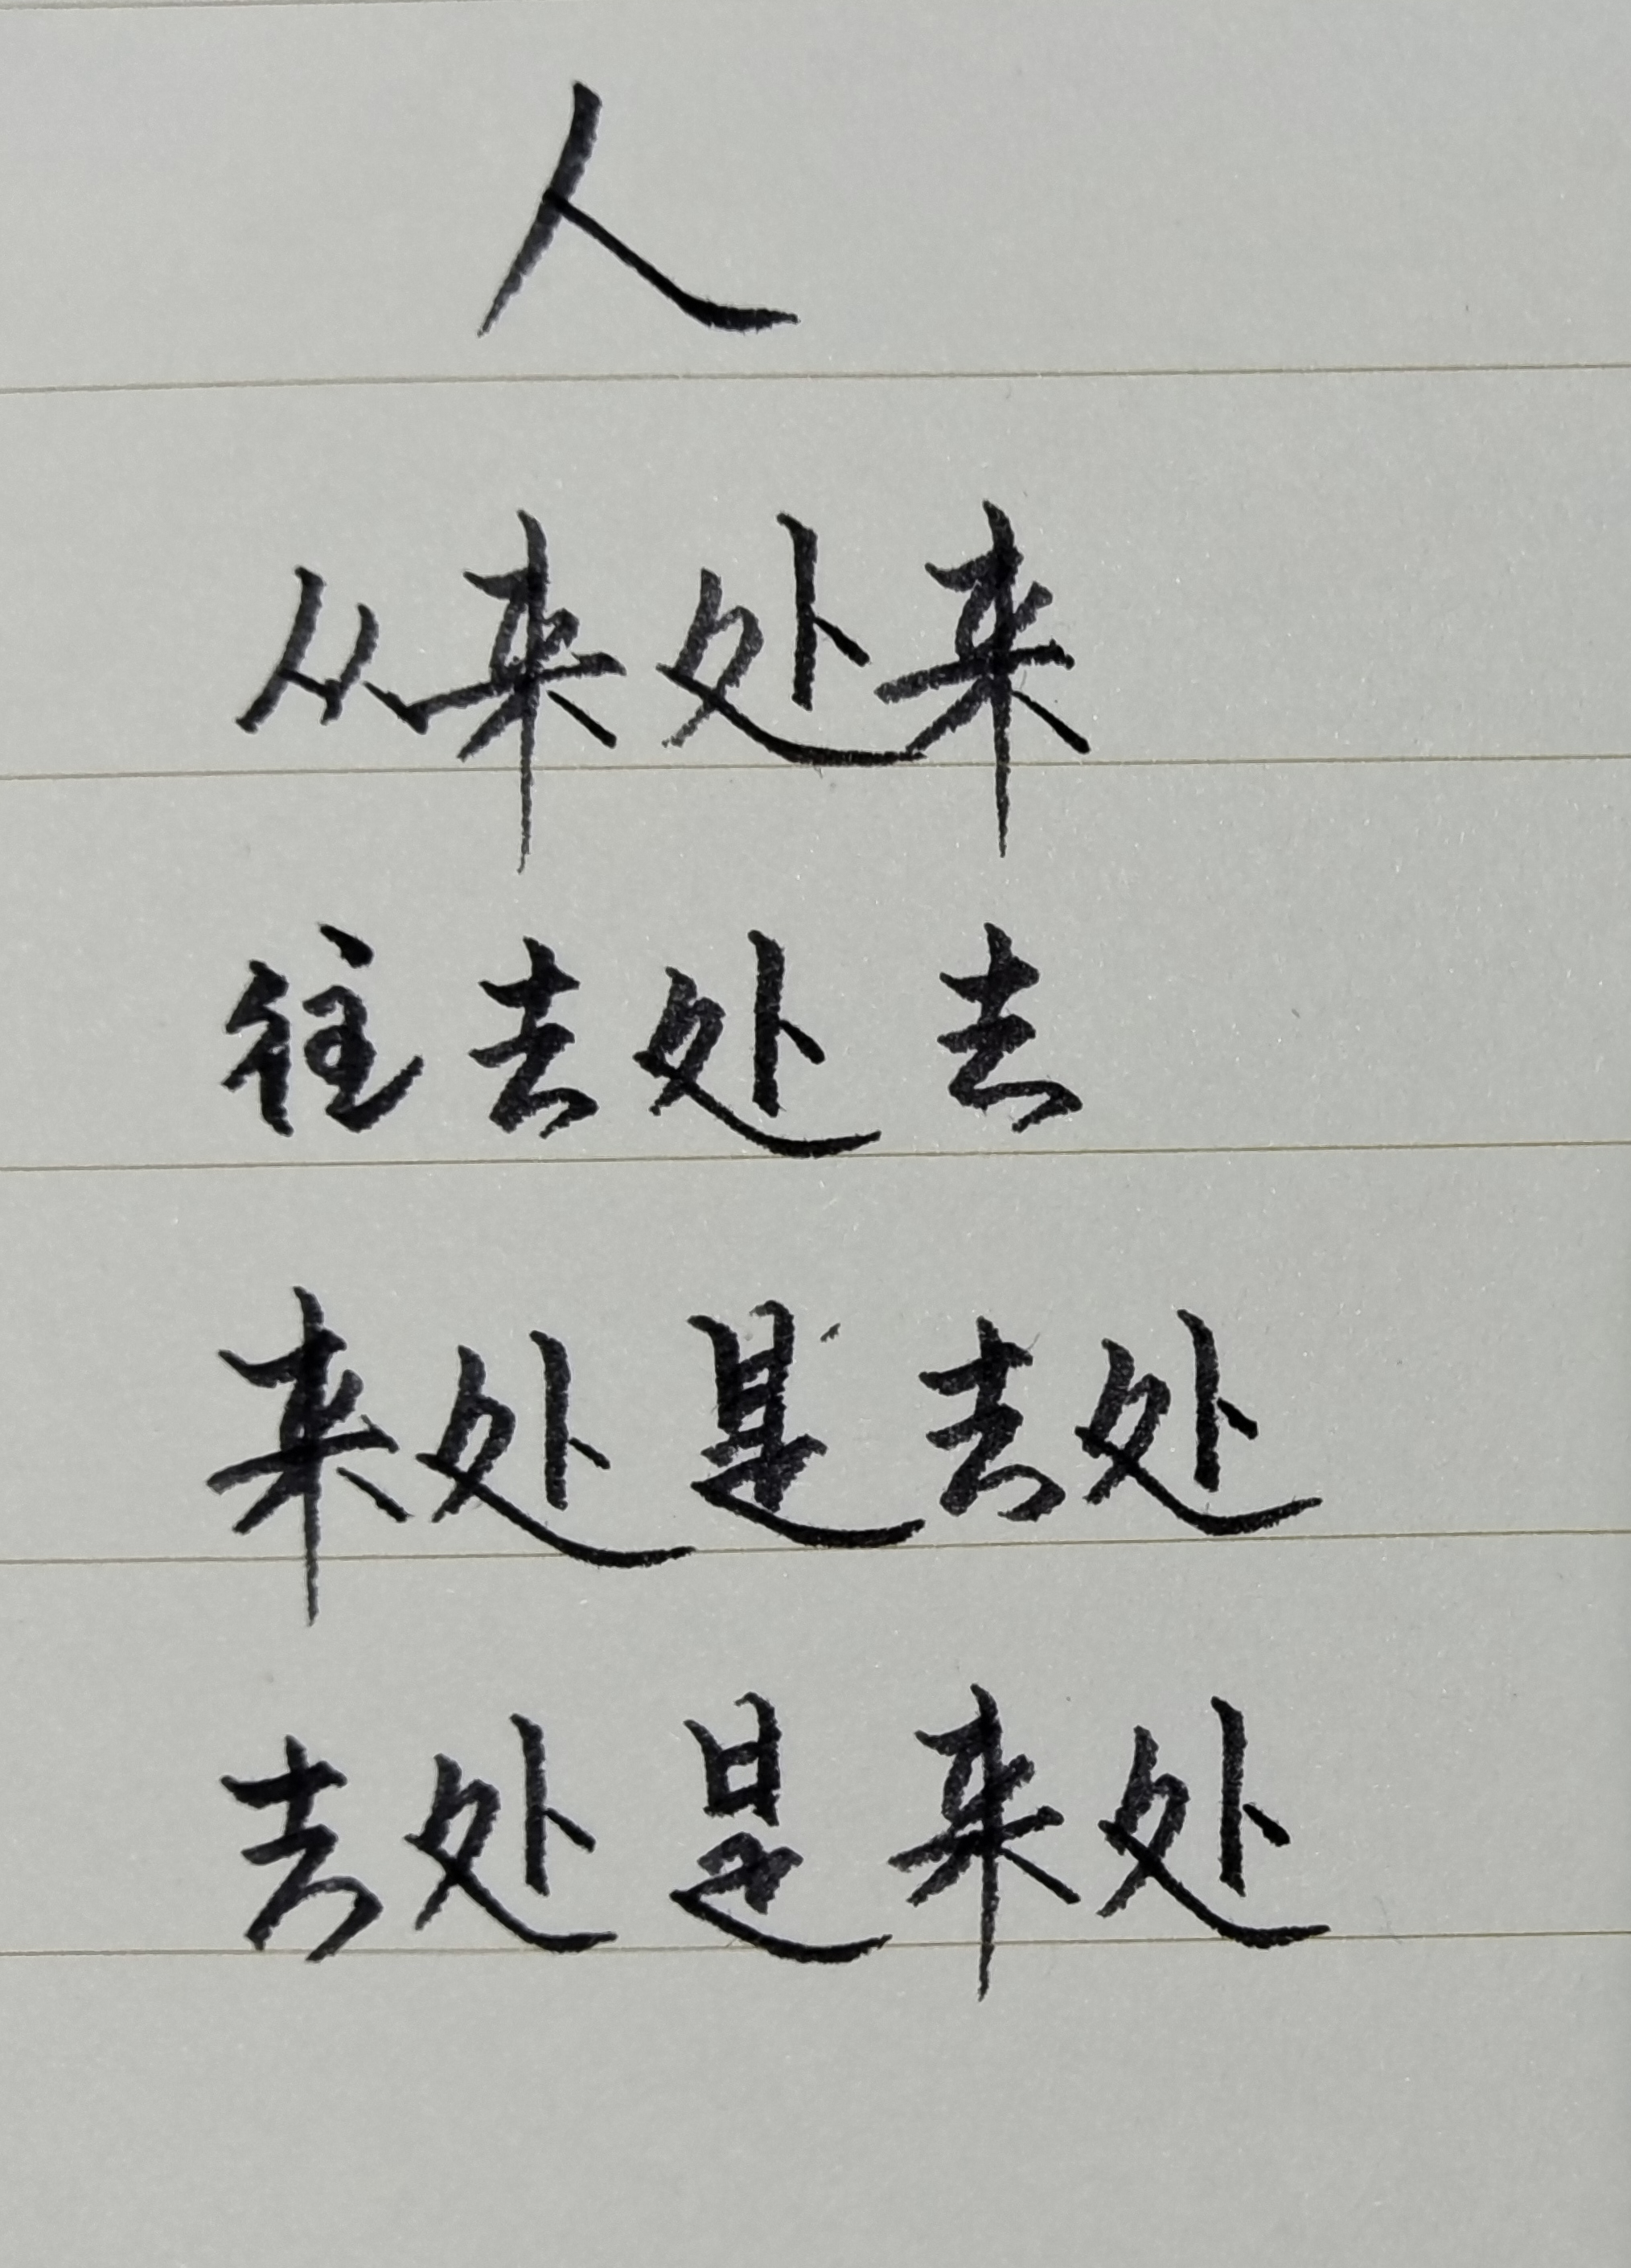 人
从来处来
往去处去
来处是去处
去处是来处